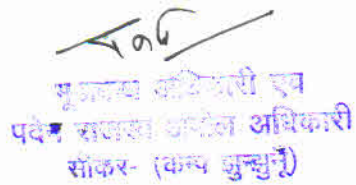 भू-प्रबन्ध अधिकारी एवं
पदेन राजस्व अपील अधिकारी
सीकर- (कैम्प झुन्झुनूं)